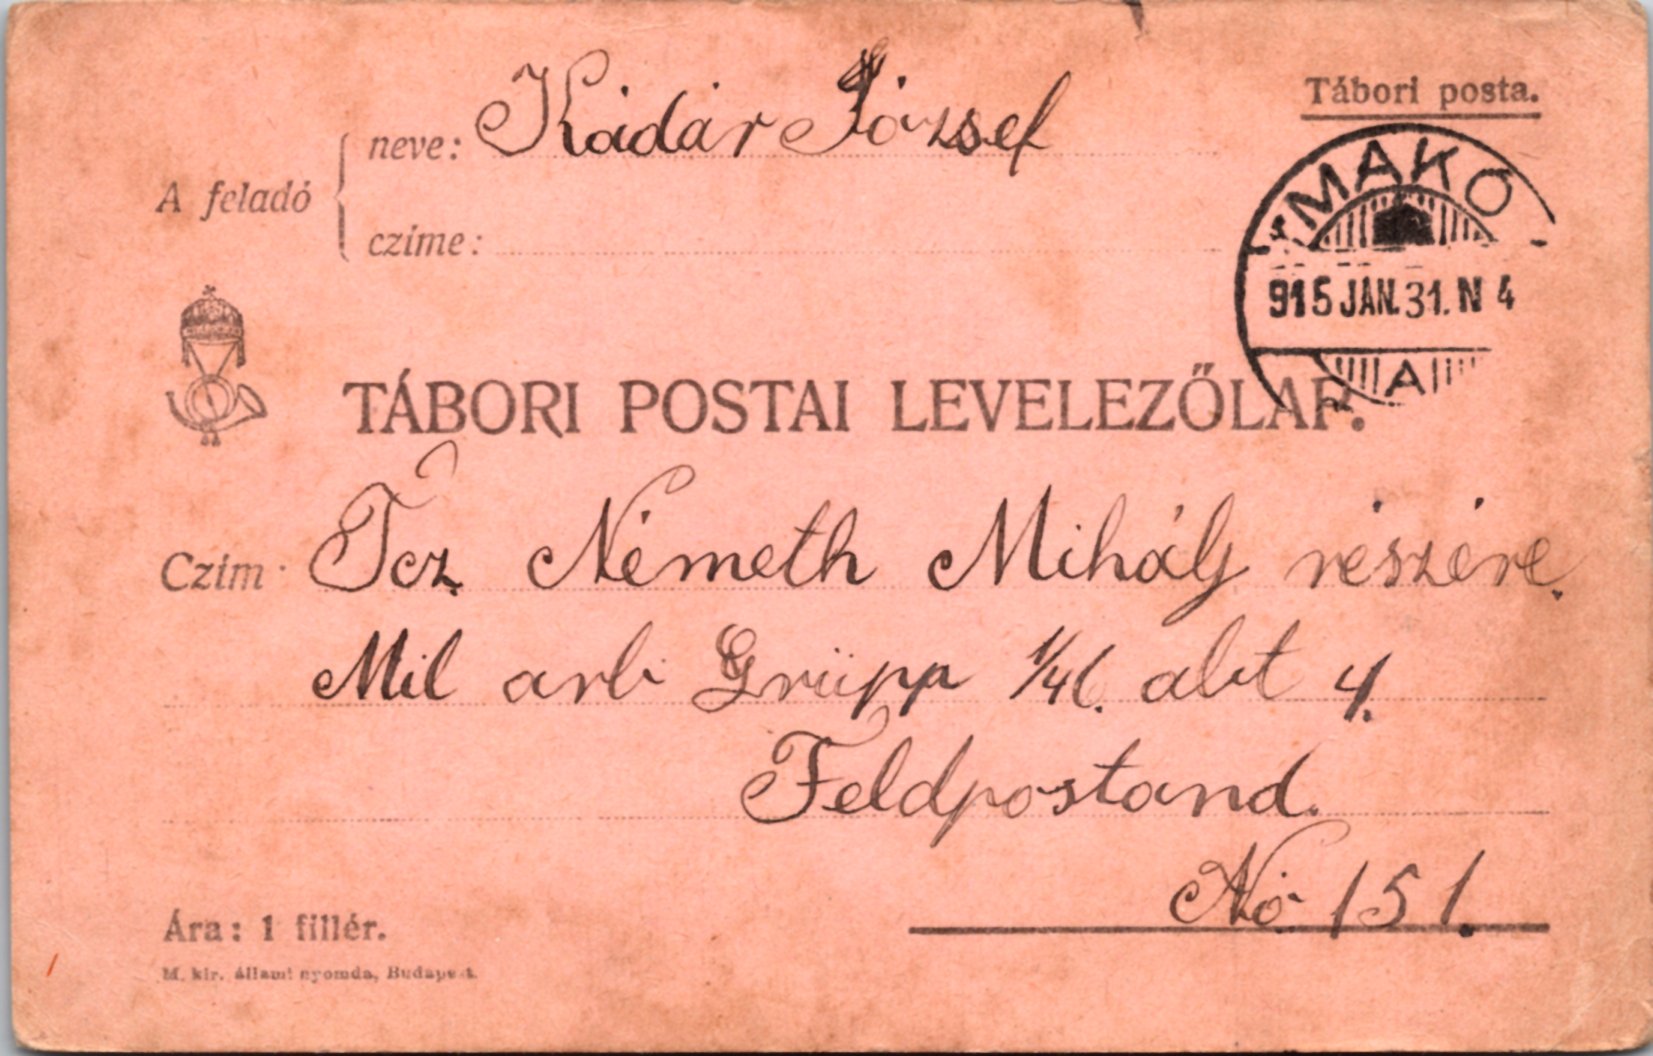 Tábori posta.
A feladó
neve: Kádár József
czime:
MAKÓ
915 JAN. 31. N 4
A
TÁBORI POSTAI LEVELEZŐLAP.
Czim Németh Mihály részére.
Mil arb Grüpp 1/46. abt 4.
Feldpostand.
No 151.
Ára: 1 fillér.
M. kir. állami nyomda, Budapest.